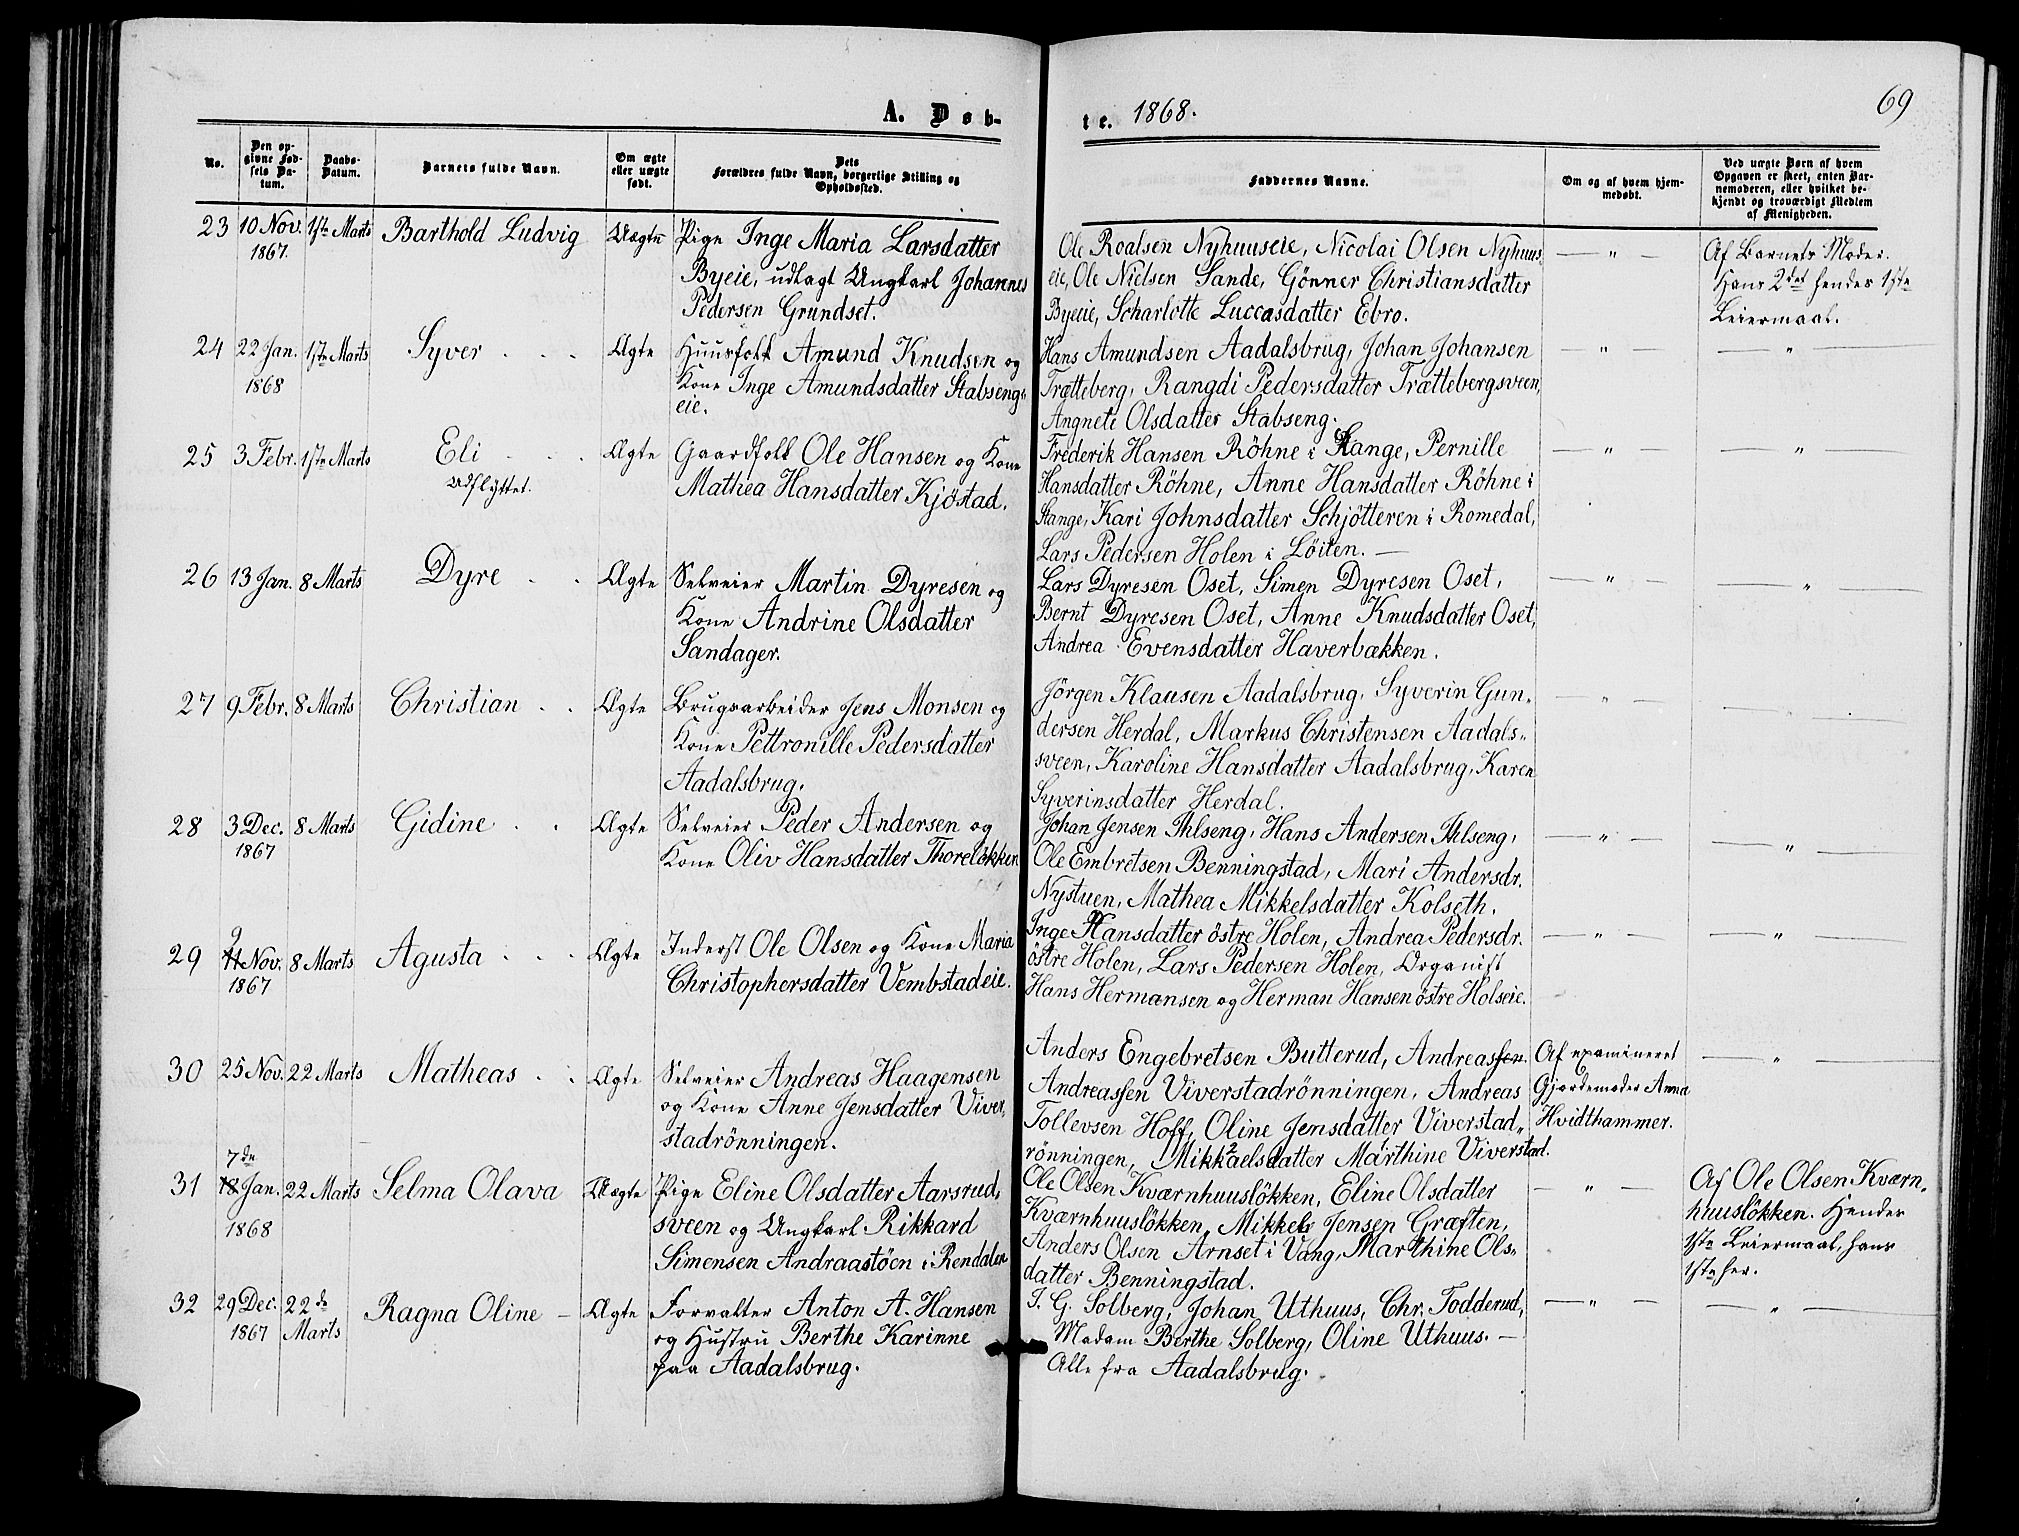 A. Døb-
te. 1868.
69
No.
Den op-
givne Fød-
sels Da-
tum.
Daabs-
Datum.
Barnets fulde Navn.
Om ægte
eller uægte
født.
Dets
Forældres fulde Navn, borgerlige Stilling og
Opholdssted.
Faddernes Navne.
Om og af hvem hjem-
medøbt.
Ved uægte Børn af hvem
Opgaven er skeet, enten Bar-
nemoderen, eller hvilket be-
kjendt og troværdigt Medlem
af Menigheden.
23 10 Nov. 1ste Marts Barthold Ludvig Uægte Pige Inge Maria Larsdatter
1867.
Byeie, udlagt Ungkarl Johannes
Pedersen Grundset.
Ole Roalsen Nyhuuseie, Nicolai Olsen Nyhuus-
eie, Ole Nielsen Sande, Gönner Christiansdatter
Byeie, Scharlotte Luccasdatter Ebro.
— " —
Af Barnets Moder.
Hans 2det hendes 1ste
Leiermaal.
24 22 Jan. 1ste Marts Syver . . . Ægte Huusfolk Amund Knudsen og
1868
Kone Inge Amundsdatter Stabseng-
eie.
Hans Amundsen Aadalsbrug, Johan Johansen
Trætteberg, Rangdi Pedersdatter Trættebergsveen,
Angnete Olsdatter Stabseng.
— " — — " —
25 3 Febr. 1ste Marts Eli . . . Ægte Gaardfolk Ole Hansen og Kone
Udflyttet.
Mathea Hansdatter Kjöstad.
Frederik Hansen Röhne i Stange, Pernille
Hansdatter Röhne, Anne Hansdatter Röhne i
Stange, Kari Johnsdatter Schjötteren i Romedal,
Lars Pedersen Holen i Löiten. —
— " — — " —
26 13 Jan. 8 Marts Dyre . . Ægte Selveier Martin Dyresen og
Kone Andrine Olsdatter
Sandager.
Lars Dyresen Oset, Simen Dyresen Oset,
Bernt Dyresen Oset, Anne Knudsdatter Oset,
Andrea Evensdatter Haverbækken.
— " — — " —
27 9 Febr. 8 Marts Christian . . Ægte Brugsarbeider Jens Monsen og
Kone Pettronille Pedersdatter
Aadalsbrug.
Jörgen Klausen Aadalsbrug, Syverin Gun-
dersen Herdal, Markus Christensen Aadals-
sveen, Karoline Hansdatter Aadalsbrug, Karen
Syverinsdatter Herdal.
— " — — " —
28 3 Dec. 8 Marts Gidine . . Ægte Selveier Peder Andersen og
1867
Kone Oliv Hansdatter Thorelökken
Johan Jensen Ihlseng, Hans Andersen Ihlseng,
Ole Embretsen Benningstad, Mari Andersdr.
Nystuen, Mathea Mikkelsdatter Kolseth.
— " — — " —
9
29 11 Nov. 8 Marts Agusta . . . Ægte Inderst Ole Olsen og Kone Maria
1867
Christophersdatter Vembstadeie.
Inge Hansdatter östre Holen, Andrea Pedersdr.
östre Holen, Lars Pedersen Holen, Organist
Hans Hermansen og Herman Hansen östre Holseie.
— " — — " —
30 25 Nov. 22 Marts Matheas . . Ægte Selveier Andreas Haagensen
og Kone Anne Jensdatter Viver-
stadrönningen.
Anders Engebretsen Butterud, Andreassen
Andreassen Viverstadrönningen, Andreas
Tollevsen Hoff, Oline Jensdatter Viverstad-
rönningen, Mikkaelsdatter Marthine Viverstad.
Af examineret
Gjordemoder Anna
Hvidthammer.
— " —
7de
31 18 Jan. 22 Marts Selma Olava Uægte Pige Eline Olsdatter Aarsrud-
1868
sveen og Ungkarl Rikkard
Simensen Andraastöen i Rendalen
Ole Olsen Kværnhuuslökken, Eline Olsdatter
Kværnhuuslökken, Mikkel Jensen Græften,
Anders Olsen Arnset i Vang, Marthine Ols-
datter Benningstad.
— " —
Af Ole Olsen Kværn-
huuslökken. Hendes
1ste Leiermaal, hans
1ste her.
32 29 Dec. 22de Ragna Oline — Ægte Forvalter Anton A. Hansen
1867 Marts
og Hustru Berthe Karinne
paa Aadalsbrug.
I. G. Solberg, Johan Uthuus, Chr. Todderud,
Madam Berthe Solberg, Oline Uthuus. —
Alle fra Aadalsbrug.
— " — — " —